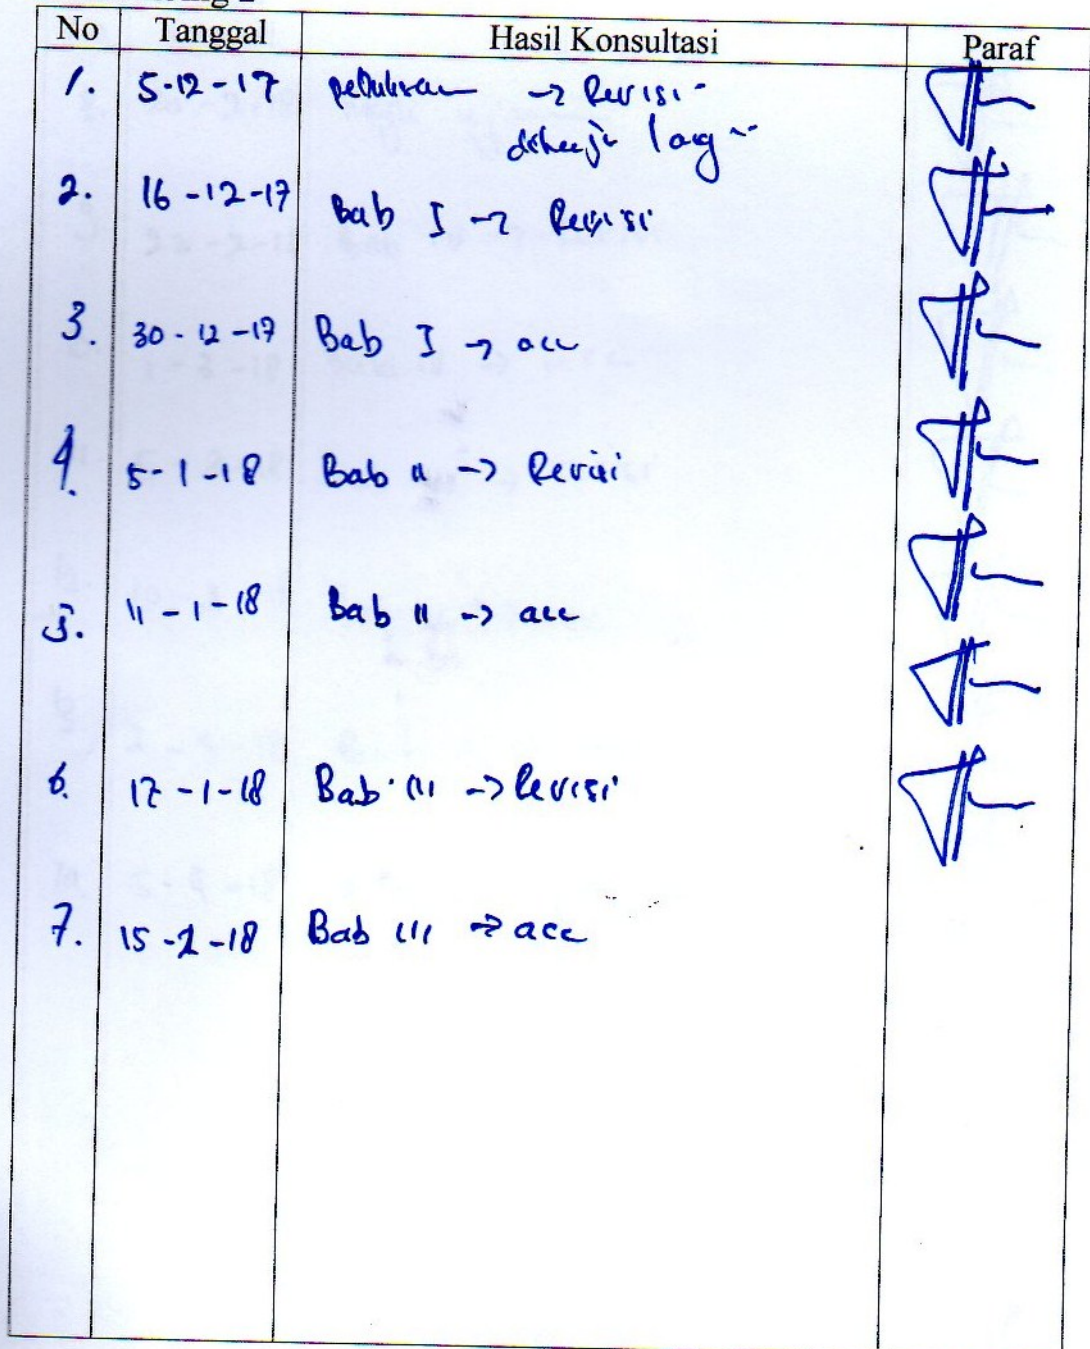 No Tanggal Hasil Konsultasi Paraf
1. 5-12-17 → Revisi
lagi
2. 16-12-17 Bab I → Revisi
3. 30-12-17 Bab I → acc
4. 5-1-18 Bab II → Revisi
5. 11-1-18 Bab II → acc
6. 17-1-18 Bab III → Revisi
7. 15-2-18 Bab III → acc